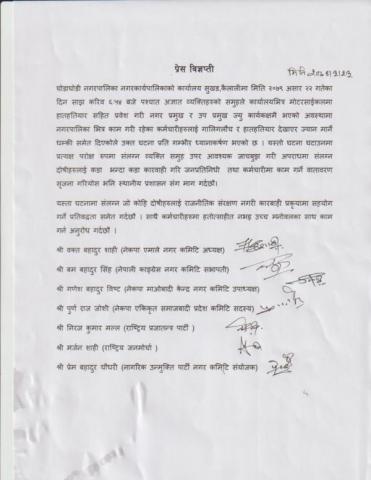 प्रेस बिज्ञप्ती
घोडाघोडी नगरपालिका नगरकार्यपालिकाको कार्यालय सुखड,कैलालीमा मिति २०७९ असार २२ गतेका
दिन साझ करिव ६:५४ बजे पश्चात अज्ञात व्यक्तिहरुको समुहले कार्यालयभित्र मोटरसाईकलमा
हातहतियार सहित प्रवेश गरी नगर प्रमुख र उप प्रमुख ज्यु कार्यकक्षमै भएको अवस्थामा
नगरपालिका भित्र काम गरी रहेका कर्मचारीहरुलाई गालिगलौच र हातहतियार देखाएर ज्यान मार्ने
धम्की समेत दिएकोले उक्त घटना प्रति गम्भीर ध्यानाकर्षण भएको छ । यस्तो घटना घटाउनमा
प्रत्यक्ष परोक्ष रुपमा संलग्न व्यक्ति समुह उपर आवश्यक जाचबुझ गरी अपराधमा संलग्न
दोषीहरुलाई कडा भन्दा कडा कारवाही गरि जनप्रतिनिधी तथा कर्मचारीमा काम गर्ने वातावरण
सृजना गरियोस भनि स्थानीय प्रशासन संग माग गर्दछौ।
यस्ता घटनामा संलग्न जो कोहि दोषीहरुलाई राजनितिक संरक्षण नगरी कारबाही प्रकृयामा सहयोग
गर्ने प्रतिवद्धता समेत गर्दछौं । साथै कर्मचारीहरुमा हतोत्साहीत नभइ उच्च मनोवलका साथ काम
गर्न अनुरोध गर्दछौं ।
श्री वक्त बहादुर शाही (नेकपा एमाले नगर कमिटि अध्यक्ष)
श्री बम बहादुर सिंह (नेपाली काङ्ग्रेस नगर कमिटि सभापती)
श्री गणेश बहादुर विष्ट (नेकपा माओबादी केन्द्र नगर कमिटि उपाध्यक्ष)
श्री पुर्ण राज जोशी (नेकपा एकिकृत समाजबादी प्रदेश कमिटि सदस्य)
श्री निरज कुमार मल्ल (राष्ट्रिय प्रजातन्त्र पार्टी )
श्री मर्जन शाही (राष्ट्रिय जनमोर्चा )
श्री प्रेम बहादुर चौधरी (नागरिक उन्मुक्ति पार्टी नगर कमिटि संयोजक)